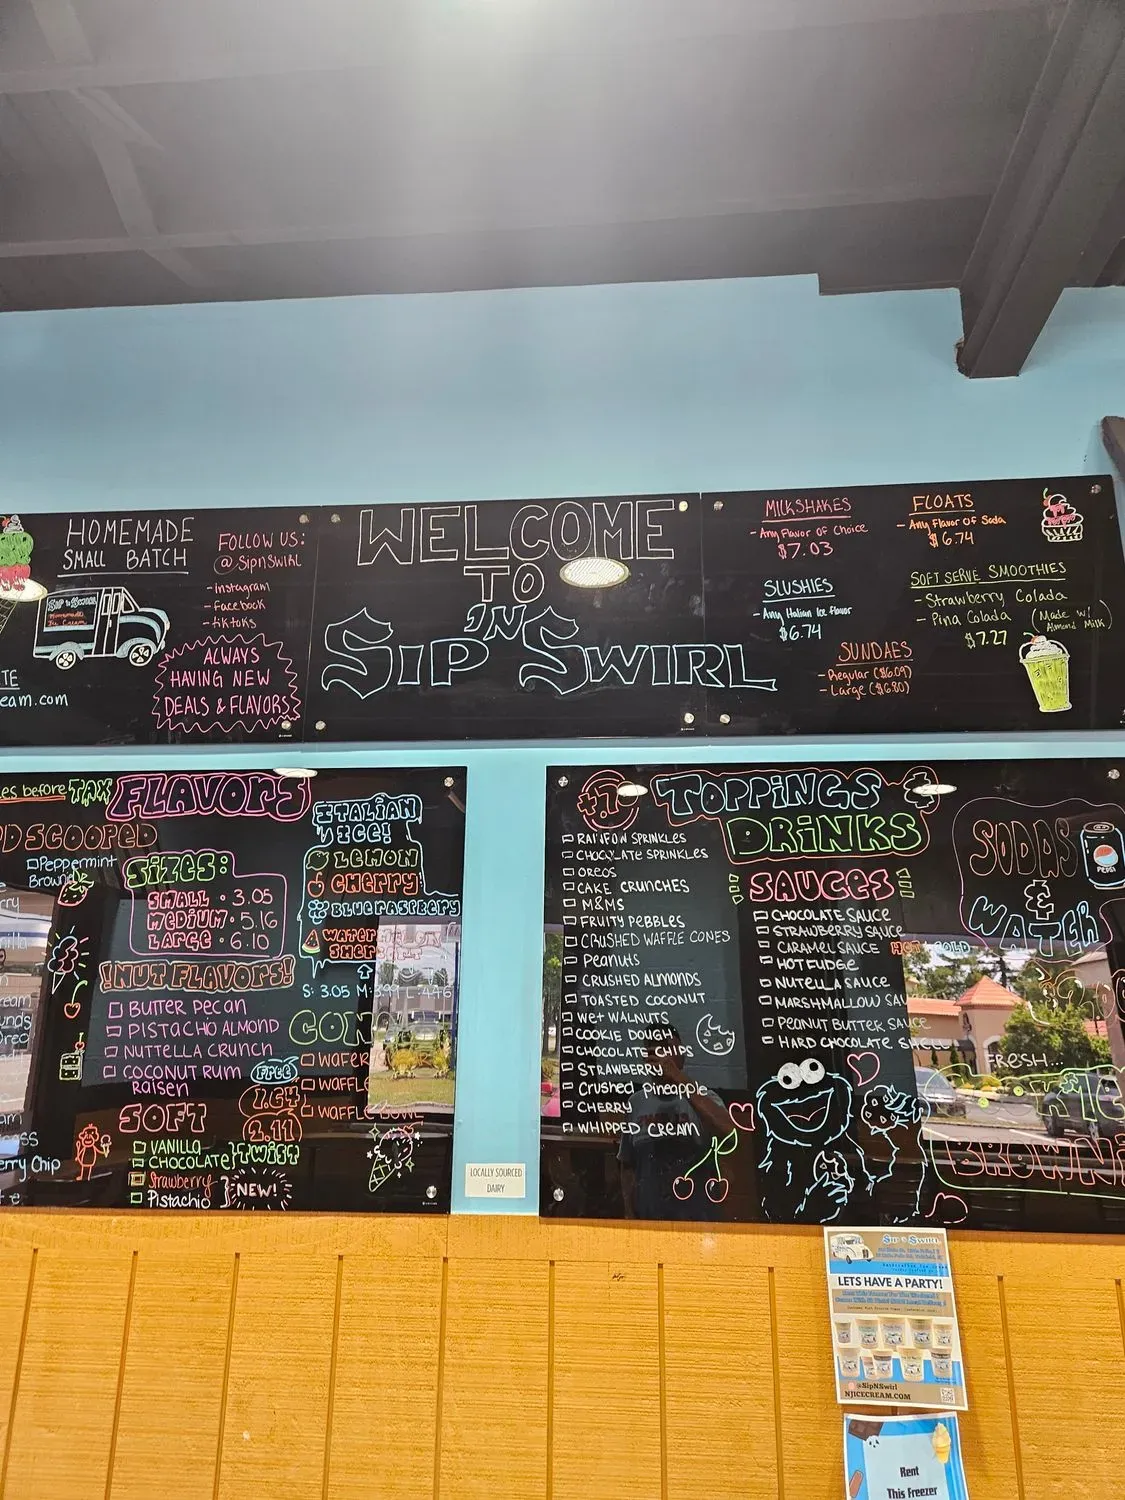 HOMEMADE
SMALL BATCH
FOLLOW US:
@SipnSwirl
- instagram
- facebook
- tiktoks
Sip 'n Swirl
Homemade
Ice Cream
ALWAYS
HAVING NEW
DEALS & FLAVORS
TE
eam.com
WELCOME
TO
SIP 'N SWIRL
MILKSHAKES
- Any Flavor of Choice
$7.03
SLUSHIES
- Any Italian Ice flavor
$6.74
FLOATS
- Any Flavor Of Soda
$6.74
SOFT SERVE SMOOTHIES
- Strawberry Colada
- Pina Colada (Made w/
Almond Milk)
$7.27
SUNDAES
- Regular ($6.09)
- Large ($6.80)
es before TAX
FLAVORS
D SCOOPED
Peppermint
Brownie
SIZES:
SMALL • 3.05
MEDIUM • 5.16
LARGE • 6.10
!NUT FLAVORS!
BUTTER PECAN
PISTACHIO ALMOND
NUTTELLA CRUNCH
COCONUT RUM
RAISEN
SOFT
VANILLA
CHOCOLATE } TWIST
Strawberry
Pistachio } NEW!
erry Chip
ITALIAN
ICE!
LEMON
CHERRY
BLUE RASPBERRY
WATER
SHER
S: 3.05 M: 3.99 L: 4.46
CON
WAFER
WAFFLE
WAFFLE BOWL
FREE
1.64
2.11
LOCALLY SOURCED
DAIRY
TOPPINGS &
DRINKS
RAINFOW SPRINKLES
CHOCOLATE SPRINKLES
OREOS
CAKE CRUNCHES
M&MS
FRUITY PEBBLES
CRUSHED WAFFLE CONES
Peanuts
CRUSHED ALMONDS
TOASTED COCONUT
WET WALNUTS
COOKIE DOUGH
CHOCOLATE CHIPS
STRAWBERRY
Crushed Pineapple
CHERRY
WHIPPED CREAM
SAUCES
CHOCOLATE SAUCE
STRAWBERRY SAUCE
CARAMEL SAUCE HOT & COLD
HOT FUDGE
NUTELLA SAUCE
MARSHMALLOW SAU
PEANUT BUTTER SAUCE
HARD CHOCOLATE SHELL
SODAS
&
WATER
PEPSI
FRESH...
BROWNI
SIP 'N SWIRL
LETS HAVE A PARTY!
@SipNSwirl
NJICECREAM.COM
Rent
This Freezer